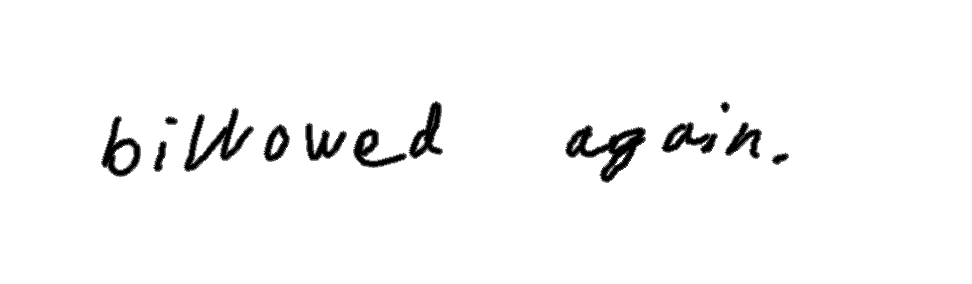 billowed again.